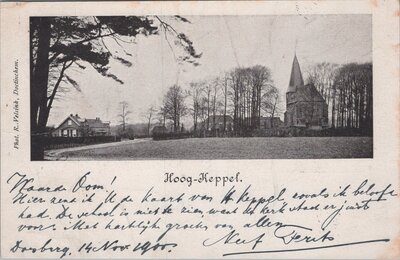 Phot. R. Velsink, Doetinchem.
Hoog-Keppel.
Waarde Oom!
Hier zend ik U de kaart van H. Keppel zooals ik beloofd
had. De school is niet te zien, want de kerk staat er juist
voor. Met hartelijk groeten van allen
Doesborg, 14 Nov. 1900. Neef Frits